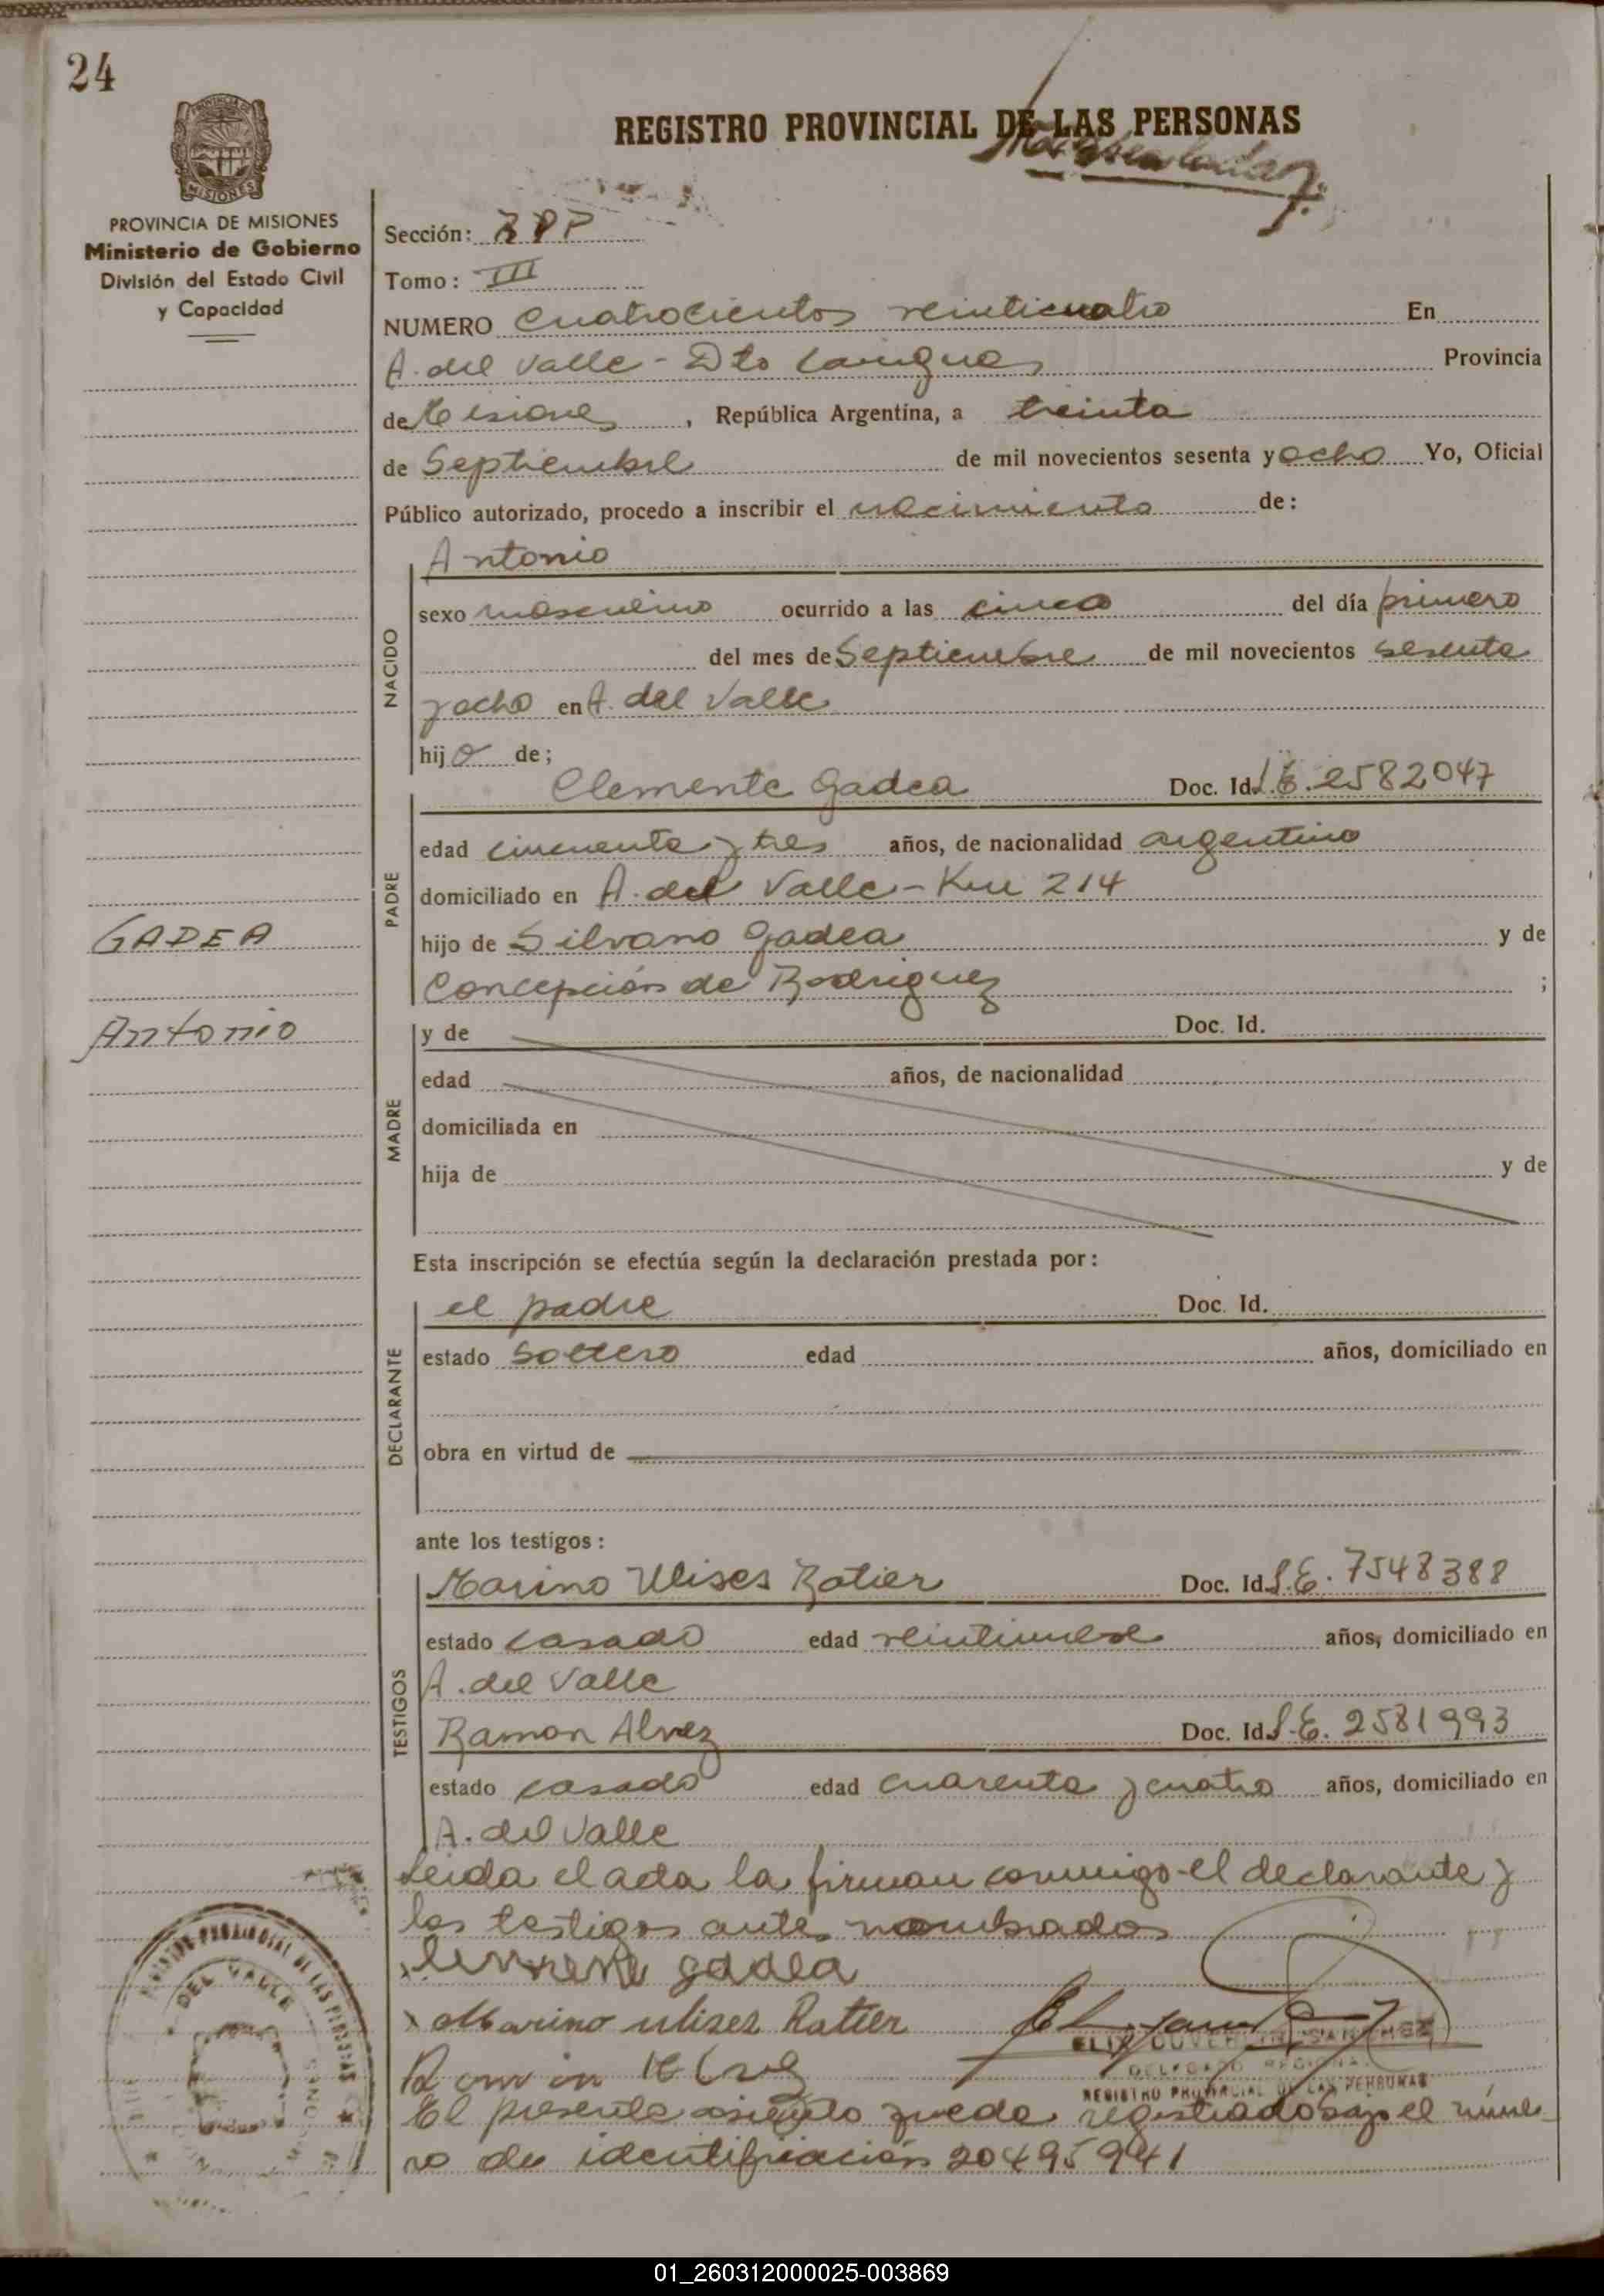 24
REGISTRO PROVINCIAL DE LAS PERSONAS
PROVINCIA DE MISIONES
Ministerio de Gobierno
División del Estado Civil
y Capacidad
Sección: RPP
Tomo: III
NUMERO Cuatrocientos veinticuatro En
A. del Valle - Dto Cainguas Provincia
de Misiones, República Argentina, a treinta
de Septiembre de mil novecientos sesenta y ocho Yo, Oficial
Público autorizado, procedo a inscribir el nacimiento de:
NACIDO
Antonio
sexo masculino ocurrido a las cinco del día primero
del mes de Septiembre de mil novecientos sesenta
y ocho en A. del Valle
hijo de;
PADRE
Clemente Gadea Doc. Id. L.E. 2582047
edad cincuenta y tres años, de nacionalidad argentino
domiciliado en A. del Valle - Km 214
hijo de Silvano Gadea y de
Concepción de Rodriguez ;
GADEA
Antonio
MADRE
y de Doc. Id.
edad años, de nacionalidad
domiciliada en
hija de y de
Esta inscripción se efectúa según la declaración prestada por:
DECLARANTE
el padre Doc. Id.
estado Soltero edad años, domiciliado en
obra en virtud de
ante los testigos:
TESTIGOS
Marino Ulises Ratier Doc. Id. L.E. 7548388
estado casado edad años, domiciliado en
A. del Valle
Ramon Alvez Doc. Id. L.E. 2581993
estado casado edad cuarenta y cuatro años, domiciliado en
A. del Valle
Leida el acta la firman conmigo el declarante y
los testigos ante nombrados
gadea
Marino ulises Ratier
Ramon
SANCHEZ
DELEGADO REGIONAL
REGISTRO PROVINCIAL DE LAS PERSONAS
El presente asiento queda registrado bajo el núme-
ro de identificación 20495941
REGISTRO PROVINCIAL DE LAS PERSONAS
DEL VALLE
01_260312000025-003869